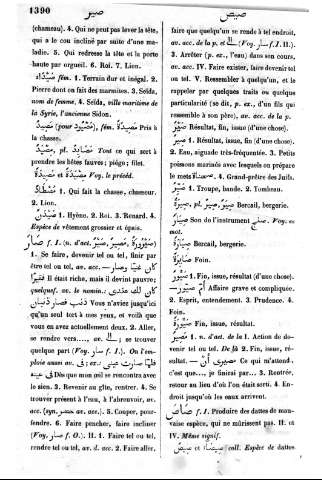 1390
صير
صيص
(chameau). 4. Qui ne peut pas lever la tête,
qui a le cou incliné par suite d'une ma-
ladie. 5. Qui redresse la tête et la porte
haute par orgueil. 6. Roi. 7. Lion.
صَيْدَاء fém. 1. Terrain dur et inégal. 2.
Pierre dont on fait des marmites. 3. Seïda,
nom de femme. 4. Seïda, ville maritime de
la Syrie, l'ancienne Sidon.
مَصِيدٌ (pour مَصْيُودٌ), fém. مَصِيدَةٌ Pris à
la chasse.
مِصْيَدٌ, pl. مَصَايِدُ Tout ce qui sert à
prendre les bêtes fauves; piége; filet.
مِصْيَدَةٌ et مَصِيدَةٌ Voy. le précéd.
1. Qui fait la chasse, chasseur.
2. Lion.
صَيْدَنٌ 1. Hyène. 2. Roi. 3. Renard. 4.
Espèce de vêtement grossier et épais.
صَارَ f. I. (n. d'act. صَيْرٌ, مَصِيرٌ, صَيْرُورَةٌ)
1. Se faire, devenir tel ou tel, finir par
être tel ou tel, av. acc. — كان غنيا وصار
فقيرا Il était riche, mais il devint pauvre;
quelquef. av. le nomin.:
Vous n'aviez jusqu'ici
qu'un seul tort à mes yeux, et voilà que
vous en avez actuellement deux. 2. Aller,
se rendre vers...., av. الى; se trouver
quelque part (Voy. صار f. I.). On l'em-
ploie aussi av. في ex.:
Dès que mon œil se rencontra avec
le sien. 3. Revenir au gîte, rentrer. 4. Se
trouver présent à l'eau, à l'abreuvoir, av.
acc. (syn. حضر av. acc.). 5. Couper, pour-
fendre. 6. Faire pencher, faire incliner
(Voy. صار f. O.). II. 1. Faire tel ou tel,
rendre tel ou tel, av. d. acc. 2. Faire aller,
faire que quelqu'un se rende à tel endroit,
av. acc. de la p. et الى (Voy. صار f. I. II.).
3. Arrêter (p. ex., l'eau) dans son cours,
av. acc. IV. Faire exister, faire devenir tel
ou tel. V. Ressembler à quelqu'un, et le
rappeler par quelques traits ou quelque
particularité (se dit, p. ex., d'un fils qui
ressemble à son père), av. acc. de la p.
صَيْرٌ Résultat, fin, issue (d'une chose).
صِيرٌ 1. Résultat, issue, fin (d'une chose).
2. Eau, aiguade très-fréquentée. 3. Petits
poissons marinés avec lesquels on prépare
le mets صحناة. 4. Grand-prêtre des Juifs.
1. Troupe, bande. 2. Tombeau.
صِيرَةٌ, pl. صِيَرٌ Bercail, bergerie.
صِيَارٌ Son de l'instrument صنج. Voy. ce
mot.
صِيَارَةٌ Bercail, bergerie.
Foin.
صَيُّورٌ 1. Fin, issue, résultat (d'une chose).
— أم صيور Affaire grave et compliquée.
2. Esprit, entendement. 3. Prudence. 4.
Foin.
Fin, issue, résultat.
مَصِيرٌ 1. n. d'act. de la I. Action de de-
venir tel ou tel. De là 2. Fin, issue, ré-
sultat. — مصيري أن Ce qui m'attend.
c'est que.... je finirai par.... 3. Rentrée,
retour au lieu d'où l'on était sorti. 4. En-
droit jusqu'où les eaux arrivent.
صَاصَ f. I. Produire des dattes de mau-
vaise espèce, qui ne mûrissent pas. II. et
IV. Même signif.
صِيصٌ et صِيصَاءٌ coll. Espèce de dattes